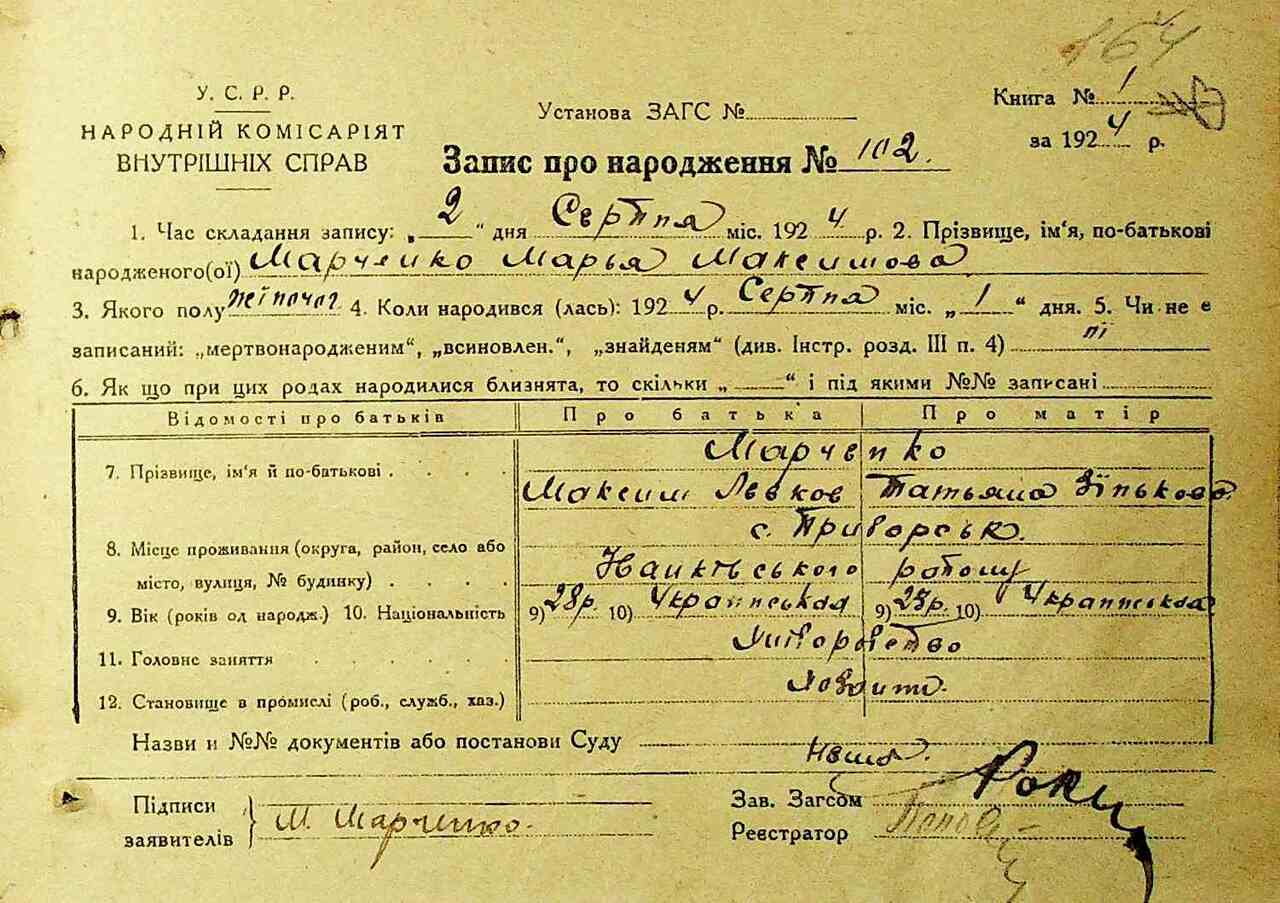 164
У. С. Р. Р.
НАРОДНІЙ КОМІСАРІЯТ
ВНУТРІШНІХ СПРАВ
Установа ЗАГС №
Книга № 1
за 1924 р.
Запис про народження № 102.
1. Час складання запису: „2“ дня Серпня міс. 1924 р. 2. Прізвище, ім'я, по-батькові
народженого(ої) Марченко Марья Максимова
3. Якого полу жіночог 4. Коли народився (лась): 1924 р. Серпня міс. „1“ дня. 5. Чи не є
записаний: „мертвонародженим“, „всиновлен.“, „знайденям“ (див. Інстр. розд. III п. 4) ні
6. Як що при цих родах народилися близнята, то скільки „ “ і під якими №№ записані
Відомості про батьків Про батька Про матір
7. Прізвище, ім'я й по-батькові Марченко
Максим Левков Татьяна Зінькова
8. Місце проживання (округа, район, село або с.
місто, вулиця, № будинку)
9. Вік (років од народж.) 10. Національність 9) 28р. 10) Украинськая 9) 23р. 10) Украинськая
11. Головне заняття
12. Становище в промислі (роб., служб., хаз.)
Назви и №№ документів або постанови Суду
Підписи
заявителів М. Марченко.
Зав. Загсом
Реєстратор